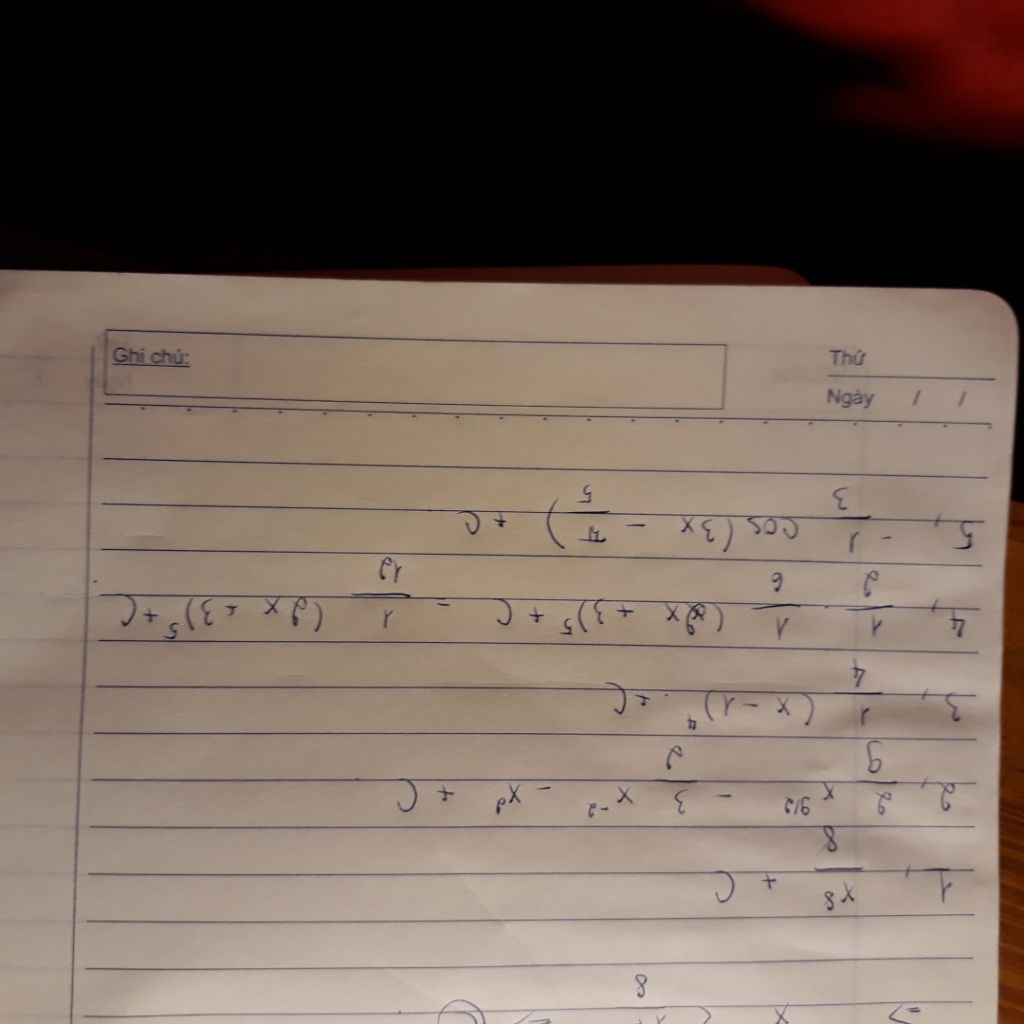 Ghi chú:
Thứ
Ngày / /
1, x⁸/8 + C
2, 2/9 x^9/2 - 3/2 x^-2 - x² + C
3, 1/4 (x - 1)⁴ + C
4, 1/2 . 1/6 (2x + 3)⁵ + C - 1/12 (2x + 3)⁵ + C
5, - 1/3 cos (3x - π/5) + C